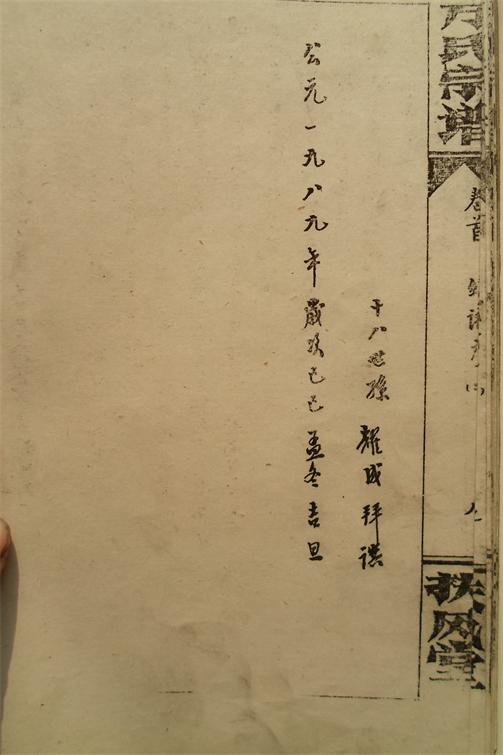 氏宗谱
卷首
扶风堂
十八世孫 耀成拜撰
公元一九八九年歲次己巳孟冬吉旦